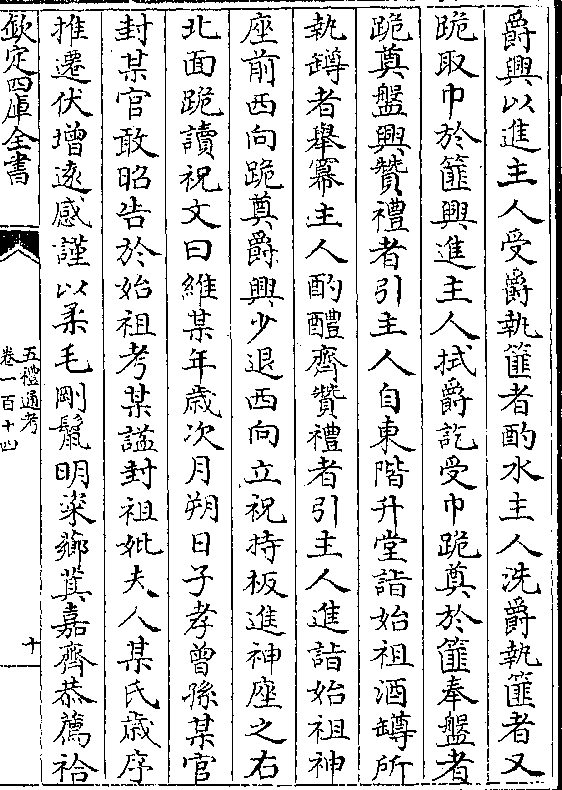 爵興以進主人受爵執篚者酌水主人洗爵執篚者又
跪取巾於篚興進主人拭爵訖受巾跪奠於篚奉盤者
跪奠盤興贊禮者引主人自東階升堂詣始祖酒罇所
執罇者舉冪主人酌醴齊贊禮者引主人進詣始祖神
座前西向跪奠爵興少退西向立祝持板進神座之右
北面跪讀祝文曰維某年歳次月朔日子孝曽孫某官
封某官敢昭告於始祖考某諡封祖妣夫人某氏歳序
推遷伏增逺感謹以柔毛剛鬛明粢薌萁嘉齊恭薦祫
欽定四庫全書
五禮通考
卷一百十四
十